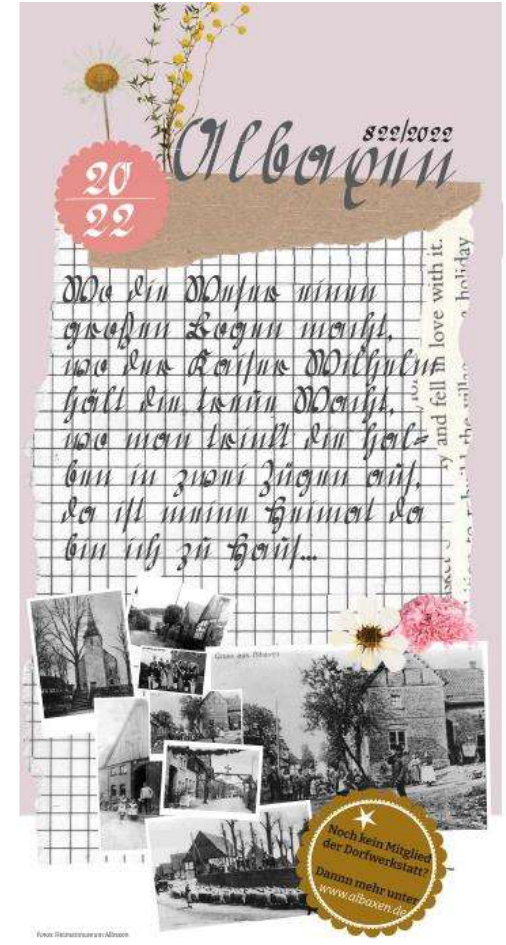 822/2022
Albaxen
20
22
Wo die Weser einen
großen Bogen macht,
wo der Kaiser Wilhelm
hält die treue Wacht,
wo man trinkt die Hal=
ben in zwei Zügen aus,
da ist meine Heimat da
bin ich zu Haus...
y and fell in love with it.
holiday
Gruss aus Albaxen
Noch kein Mitglied
der Dorfwerkstatt?
Dannn mehr unter
www.albaxen.de
Fotos: Heimatmuseum Albaxen